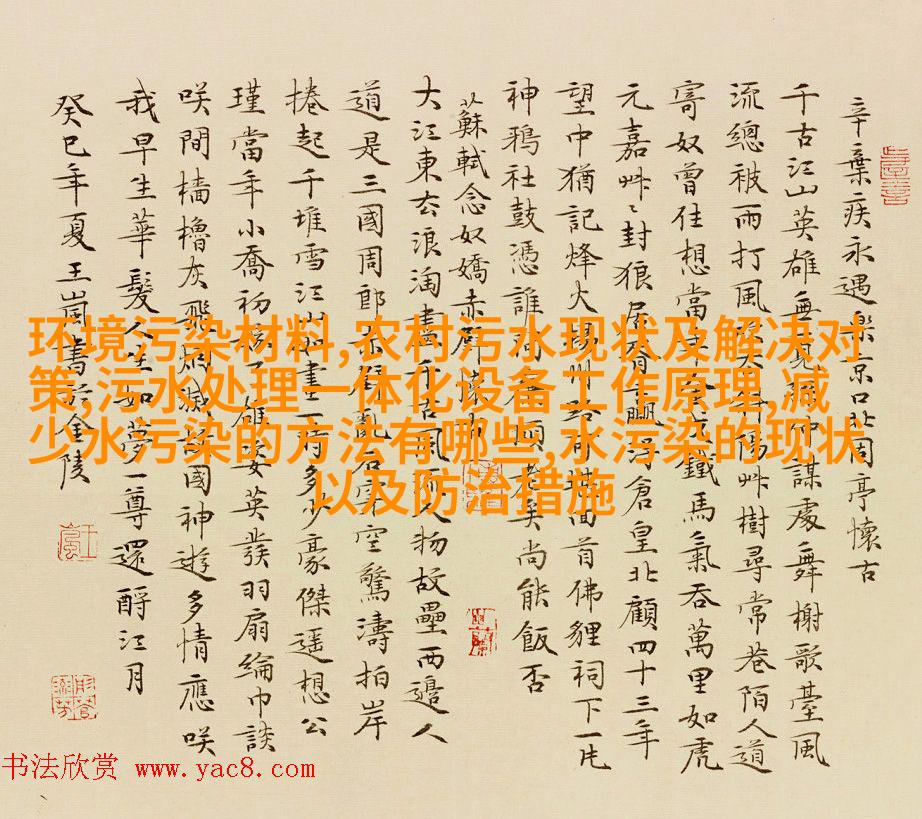 辛棄疾永遇樂京口北固亭懷古
千古江山英雄無覓孫仲謀處舞榭歌臺風
流總被雨打風吹去斜陽艸樹尋常巷陌人道
寄奴曾住想當年金戈鐵馬氣吞萬里如虎
元嘉艸〻封狼居胥贏得倉皇北顧四十三年
望中猶記烽火揚州路可堪回首佛貍祠下一片
神鴉社鼓憑誰問廉頗老矣尚能飯否
蘇軾念奴嬌赤壁懷古
大江東去浪淘盡千古風流人物故壘西邊人
道是三國周郎赤壁亂石穿空驚濤拍岸
捲起千堆雪江山如畫一時多少豪傑遥想公
瑾當年小喬初嫁了雄姿英發羽扇綸巾談
咲間檣櫓灰飛煙滅故國神遊多情應咲
我早生華髮人生如夢一尊還酹江月
癸巳年夏王崗書於金陵
环境污染材料,农村污水现状及解决对
策,污水处理一体化设备工作原理,减
少水污染的方法有哪些,水污染的现状
以及防治措施
书法欣赏 www.yac8.com